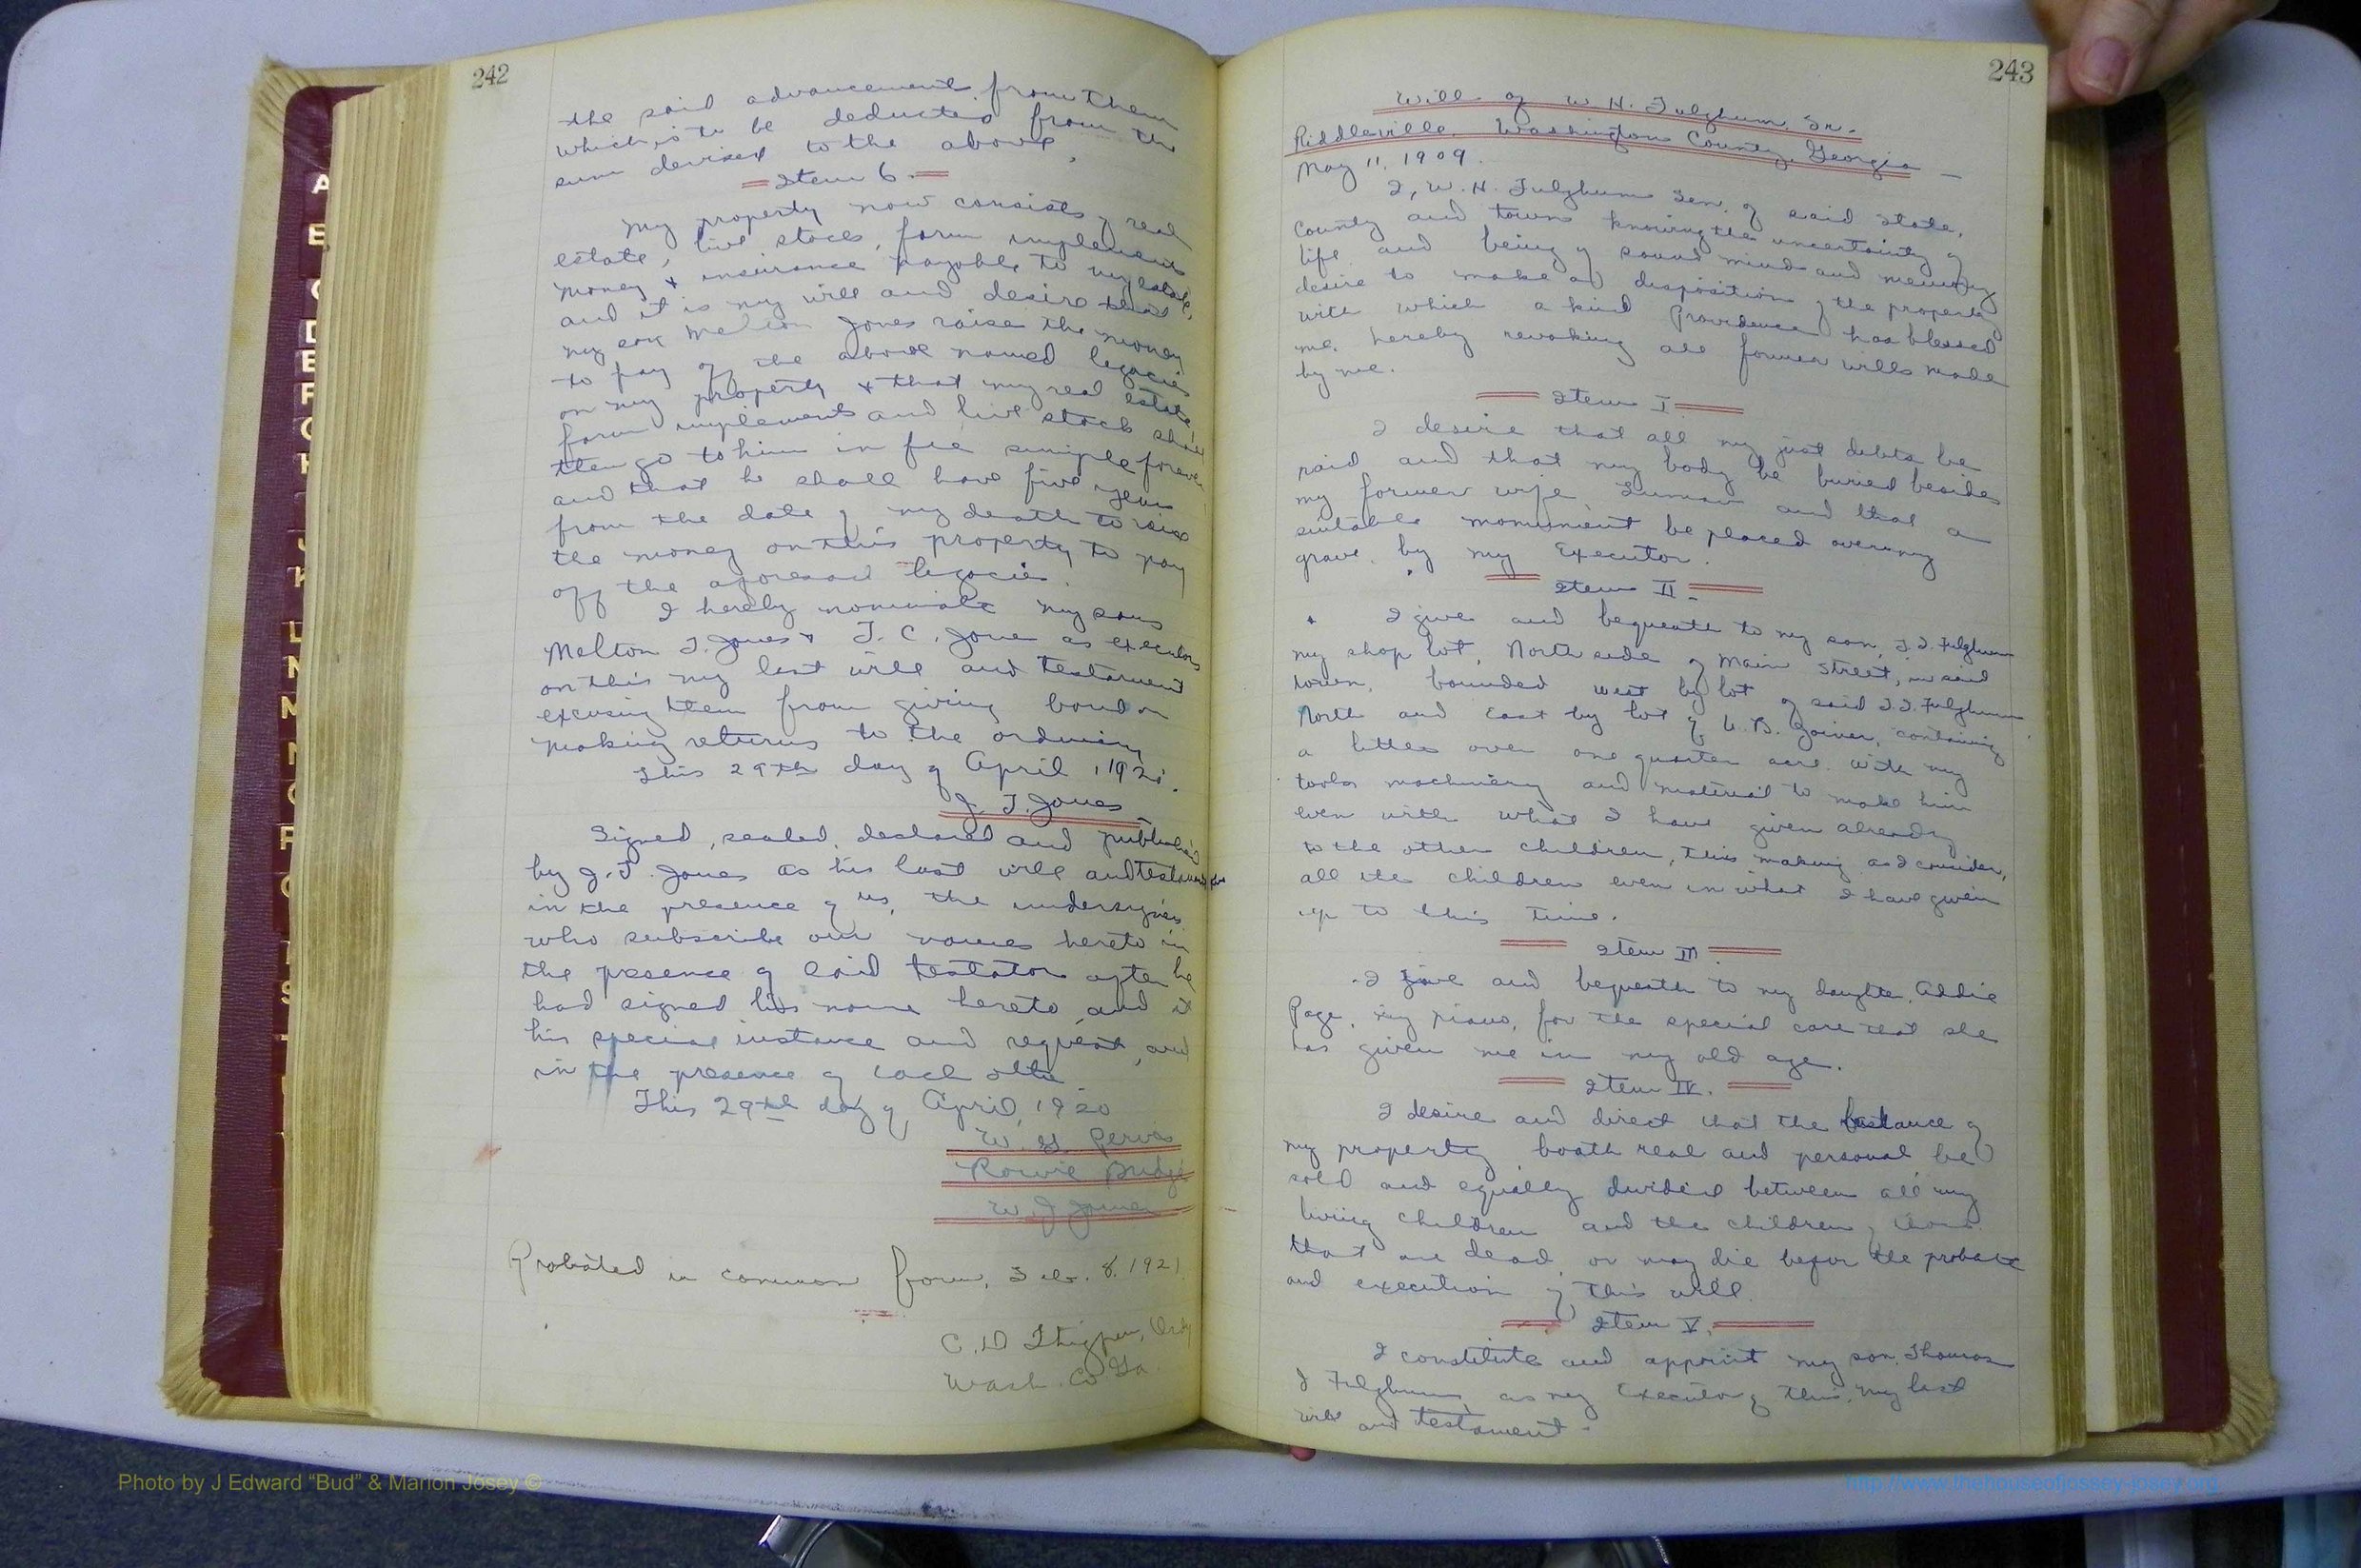 242
the said advancement from them
which is to be deducted from the
sum devised to the above.
Item 6.
My property now consists of real
estate, live stock, farm implements
money & insurance payable to my estate,
and it is my will and desire that
my son Melton Jones raise the money
to pay off the above named legacies
on my property & that my real estate,
farm implements and live stock shall
then go to him in fee simple forever
and that he shall have five years
from the date of my death to raise
the money on this property to pay
off the aforesaid legacies.
I hereby nominate my sons
Melton J. Jones & T. C. Jones as executors
on this my last will and testament
excusing them from giving bond or
making returns to the ordinary
This 29th day of April, 1920.
J. T. Jones
Signed, sealed, declared and published
by J. T. Jones as his last will and testament
in the presence of us, the undersigned
who subscribe our names hereto in
the presence of said testator after he
had signed his name hereto, and at
his special instance and request, and
in the presence of each other
This 29th day of April, 1920
W. J. Jones
Probated in common form, Feb. 8. 1921
C. D Thigpen, Ordy
Wash. Co Ga
243
Will of W. H. Fulghum, Sr.
Riddleville, Washington County, Georgia
May 11, 1909.
I, W. H. Fulghum Sen. of said State,
County and town knowing the uncertainty of
life and being of sound mind and memory
desire to make a disposition of the property
with which a kind Providence has blessed
me, hereby revoking all former wills made
by me.
Item I.
I desire that all my just debts be
paid and that my body be buried beside
my former wife and that a
suitable monument be placed over my
grave by my Executor.
Item II.
I give and bequeath to my son, T. J. Fulghum
my shop lot, North side of Main Street, in said
town, bounded west by lot of said T. J. Fulghum
North and East by lot of containing
a little over one quarter acre with my
tools machinery and material to make him
even with what I have given already
to the other children, this making as I consider,
all the children even in what I have given
up to this time.
Item III.
I give and bequeath to my daughter, Addie
Page, my piano, for the special care that she
has given me in my old age.
Item IV.
I desire and direct that the balance of
my property booth real and personal be
sold and equally divided between all my
living children and the children of those
that are dead, or may die befor the probate
and execution of this will.
Item V.
I constitute and appoint my son, Thomas
J Fulghum, as my Executor of this, my last
will and testament.
Photo by J Edward “Bud” & Marion Josey ©
http://www.thehouseofjossey-josey.org